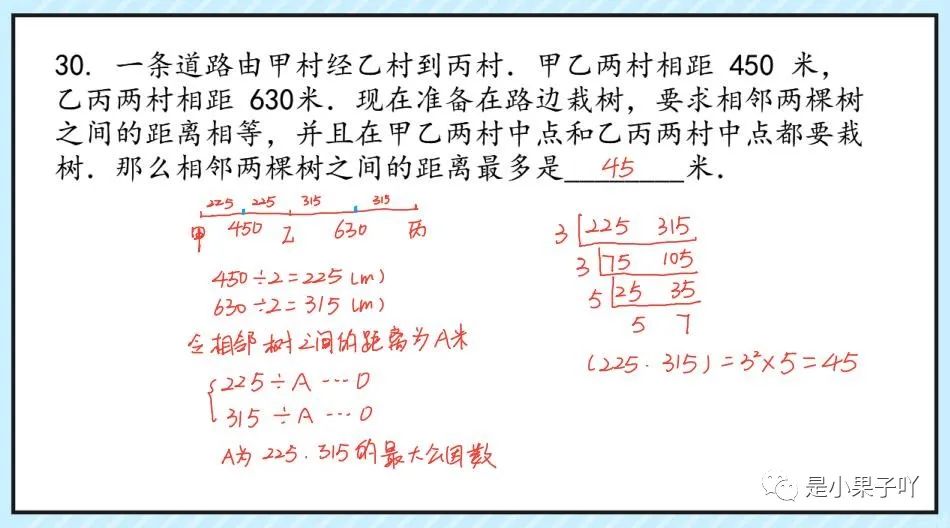 30. 一条道路由甲村经乙村到丙村. 甲乙两村相距 450 米,
乙丙两村相距 630米. 现在准备在路边栽树, 要求相邻两棵树
之间的距离相等, 并且在甲乙两村中点和乙丙两村中点都要栽
树. 那么相邻两棵树之间的距离最多是 45 米.
225 225 315 315
甲 450 乙 630 丙
450÷2=225(m)
630÷2=315(m)
令相邻树之间的距离为A米
225÷A…0
315÷A…0
A为225.315的最大公因数
3 225 315
3 75 105
5 25 35
5 7
(225.315)=3²×5=45
是小果子吖